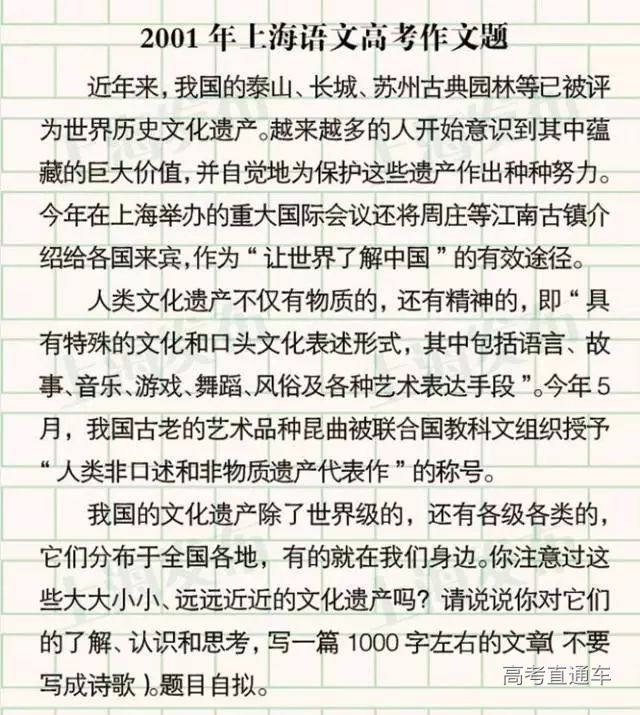 2001 年上海语文高考作文题
近年来，我国的泰山、长城、苏州古典园林等已被评
为世界历史文化遗产。越来越多的人开始意识到其中蕴
藏的巨大价值，并自觉地为保护这些遗产作出种种努力。
今年在上海举办的重大国际会议还将周庄等江南古镇介
绍给各国来宾，作为“让世界了解中国”的有效途径。
人类文化遗产不仅有物质的，还有精神的，即“具
有特殊的文化和口头文化表述形式，其中包括语言、故
事、音乐、游戏、舞蹈、风俗及各种艺术表达手段”。今年 5
月，我国古老的艺术品种昆曲被联合国教科文组织授予
“人类非口述和非物质遗产代表作”的称号。
我国的文化遗产除了世界级的，还有各级各类的，
它们分布于全国各地，有的就在我们身边。你注意过这
些大大小小、远远近近的文化遗产吗？请说说你对它们
的了解、认识和思考，写一篇 1000 字左右的文章（不要
写成诗歌）。题目自拟。
高考直通车
上海发布
上海发布
上海发布
上海发布